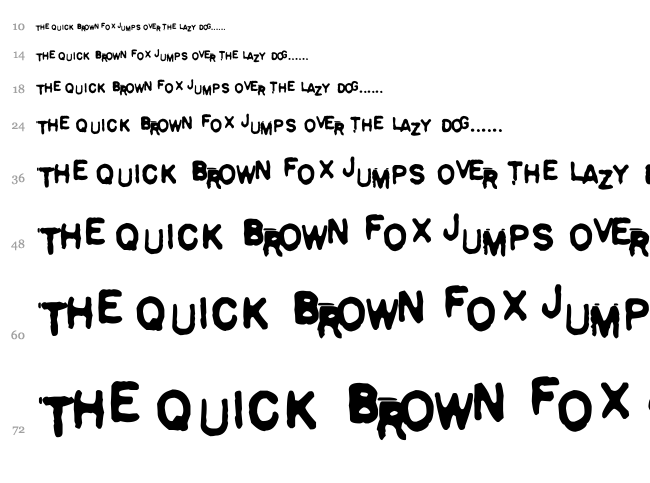 10 THE QUICK BROWN FOX JUMPS OVER THE LAZY DOG......
14 THE QUICK BROWN FOX JUMPS OVER THE LAZY DOG......
18 THE QUICK BROWN FOX JUMPS OVER THE LAZY DOG......
24 THE QUICK BROWN FOX JUMPS OVER THE LAZY DOG......
36 THE QUICK BROWN FOX JUMPS OVER THE LAZY
48 THE QUICK BROWN FOX JUMPS OVER
60 THE QUICK BROWN FOX JUMP
72 THE QUICK BROWN FOX